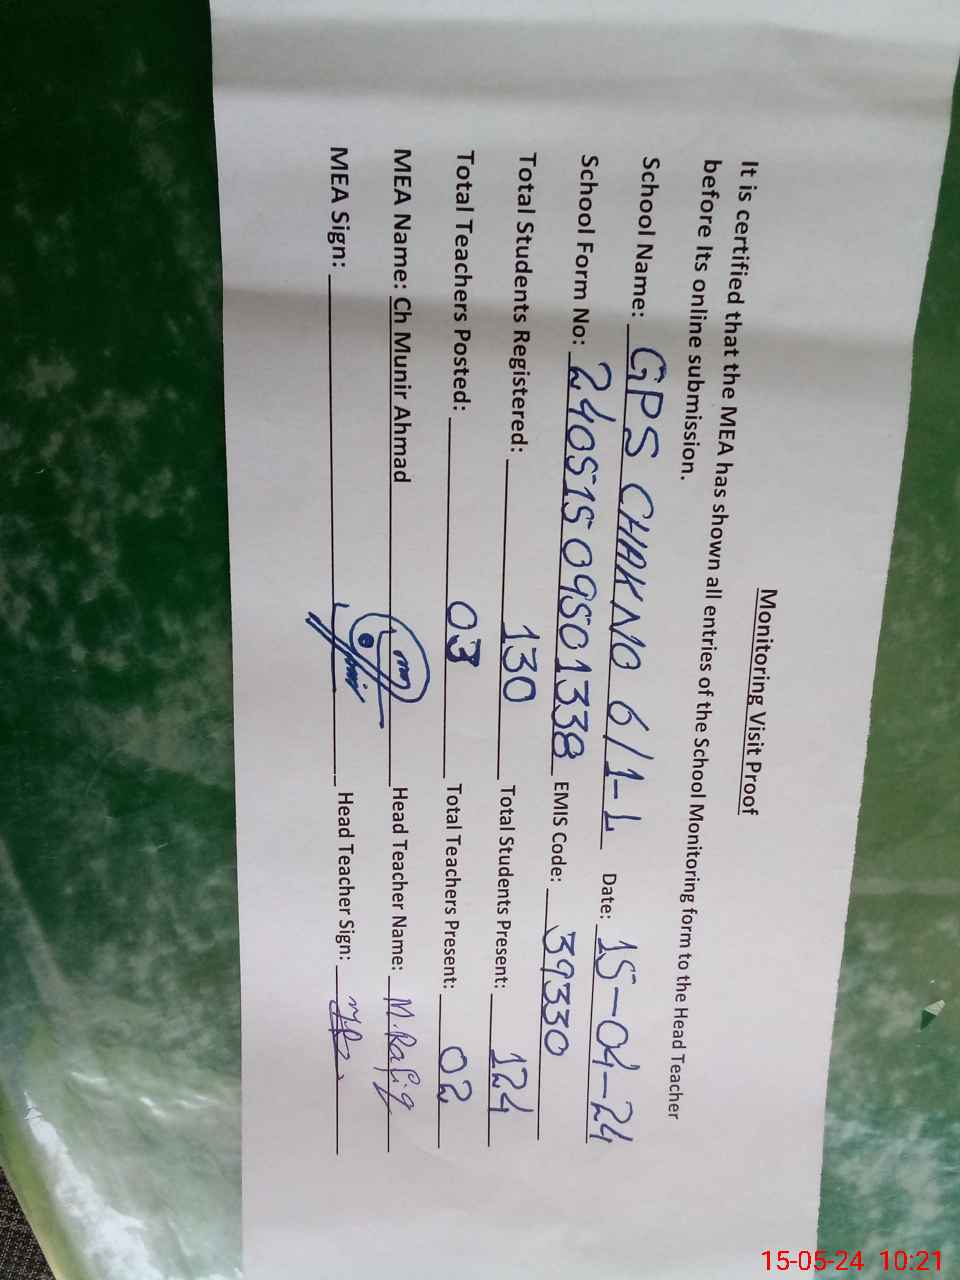 Monitoring Visit Proof
It is certified that the MEA has shown all entries of the School Monitoring form to the Head Teacher
before Its online submission.
School Name: GPS CHAK NO 6/1-L Date: 15-04-24
School Form No: 24051509501338 EMIS Code: 39330
Total Students Registered: 130 Total Students Present: 124
Total Teachers Posted: 03 Total Teachers Present: 02
MEA Name: Ch Munir Ahmad Head Teacher Name: M. Rafiq
MEA Sign: Head Teacher Sign:
15-05-24 10:21